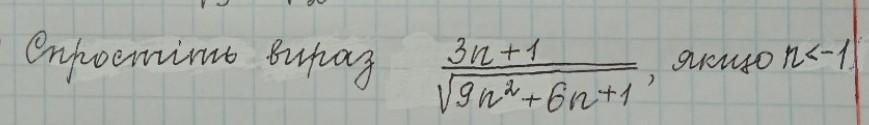 Спростіть вираз $\frac{3n+1}{\sqrt{9n^2+6n+1}}$, якщо n<-1